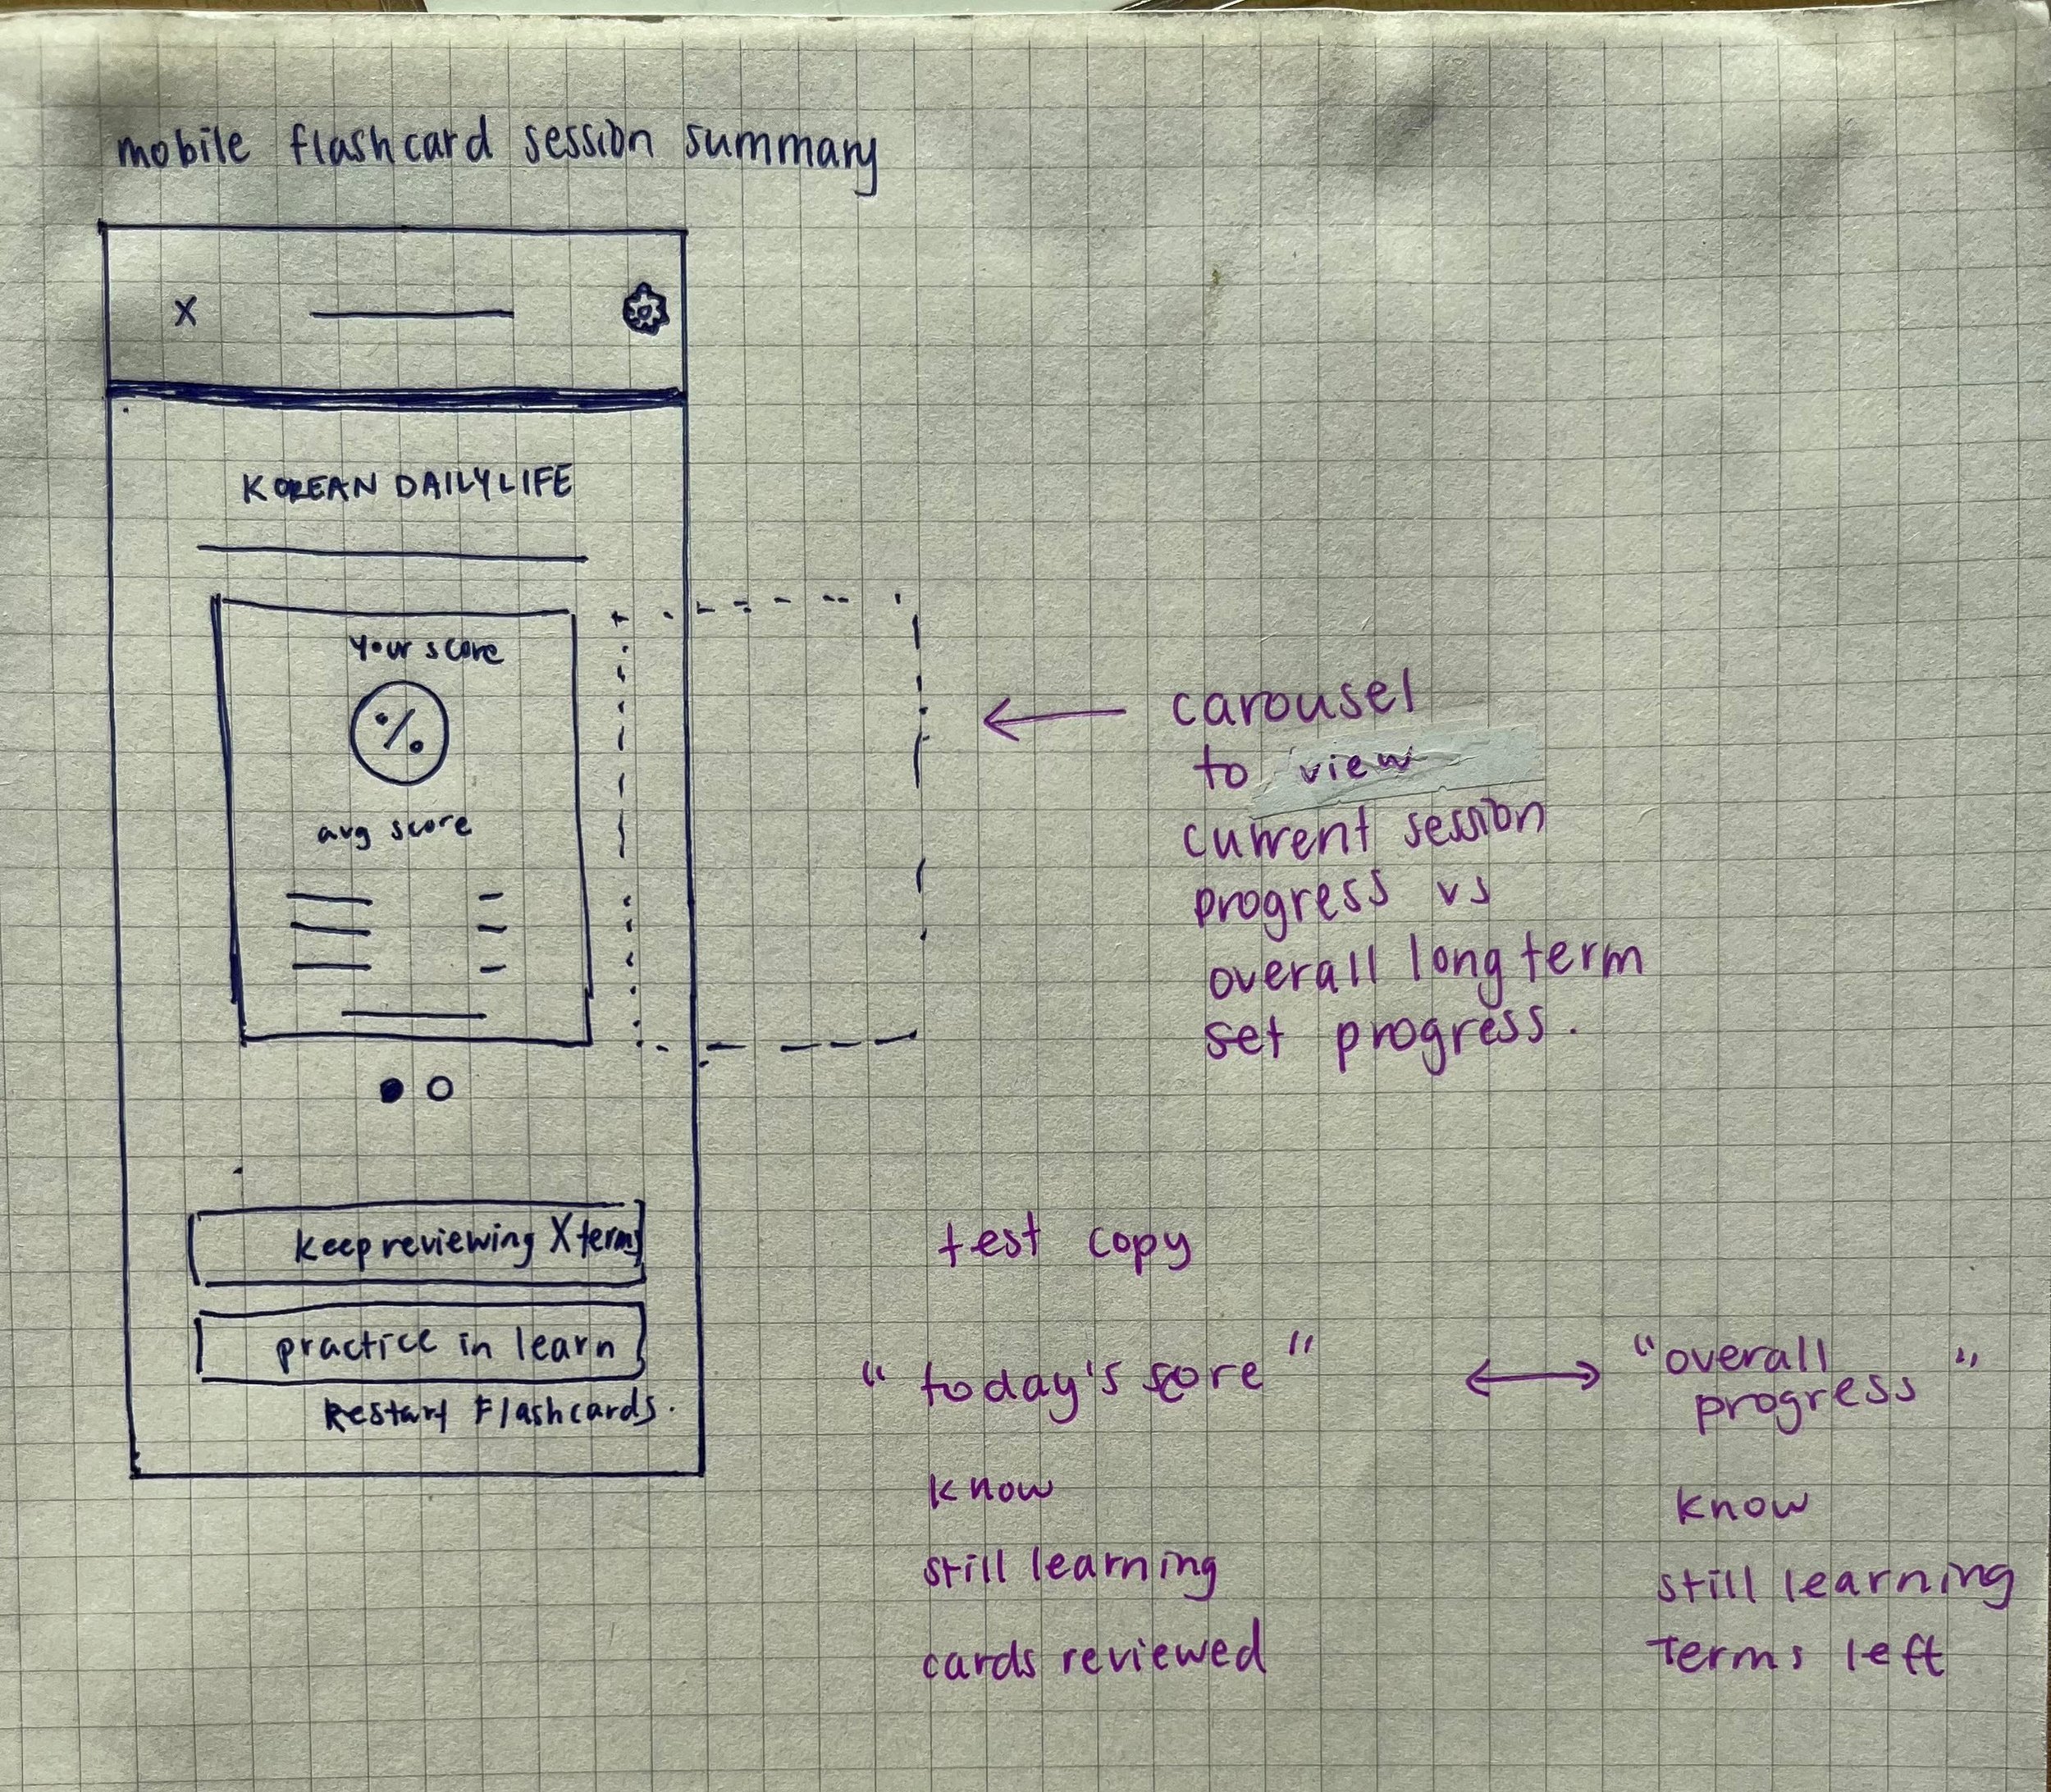 mobile flashcard session summary
X
KOREAN DAILYLIFE
Your score
%
avg score
keep reviewing X terms
practice in learn
Restart Flashcards.
carousel
to view
current session
progress vs
overall long term
set progress.
test copy
"today's score"
know
still learning
cards reviewed
"overall
progress"
know
still learning
Terms left